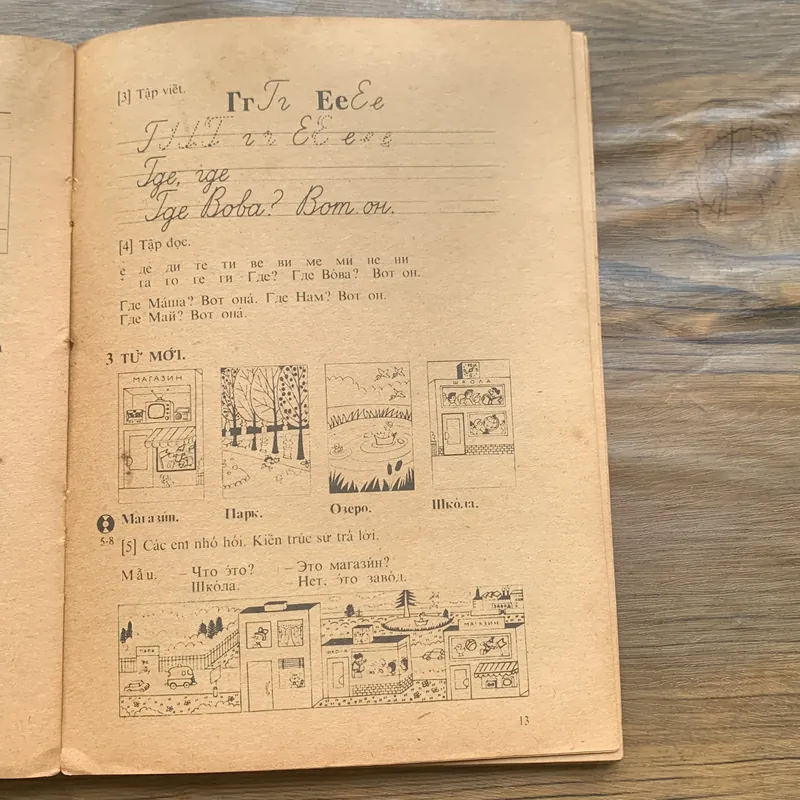 [3] Tập viết.
Гг Гг Ее Ее
Г Г Г Г г г Е Е е е е
Где, где
Где Вова? Вот он.
[4] Tập đọc.
е де ди те ти ве ви ме ми не ни
га го ге ги Где? Где Во́ва? Вот он.
Где Ма́ша? Вот она́. Где Нам? Вот он.
Где Май? Вот она́.
3 TỪ MỚI.
МАГАЗИН
ШКОЛА
Магази́н. Парк. О́зеро. Шко́ла.
5-8
[5] Các em nhỏ hỏi. Kiến trúc sư trả lời.
Mẫu. – Что э́то? – Это магази́н?
Шко́ла. Нет, э́то заво́д.
ЗАВОД
ПАРК
ШКОЛА
МАГАЗИН
13